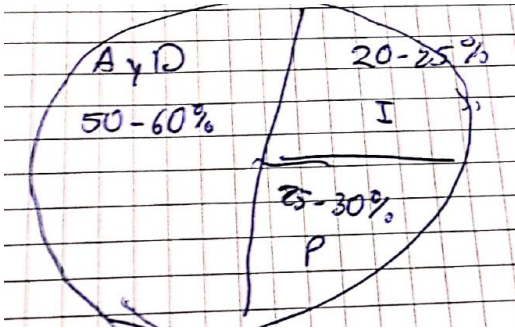 A y D
50-60%
20-25%
I
25-30%
P